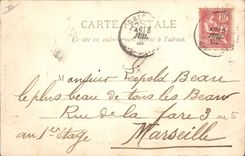 CARTE POSTALE
Ce côté est exclusivement réservé à l'adresse.
Monsieur Léopold Beau
le plus beau de tous les Beau
Rue de la Fare 3
au 1er étage Marseille